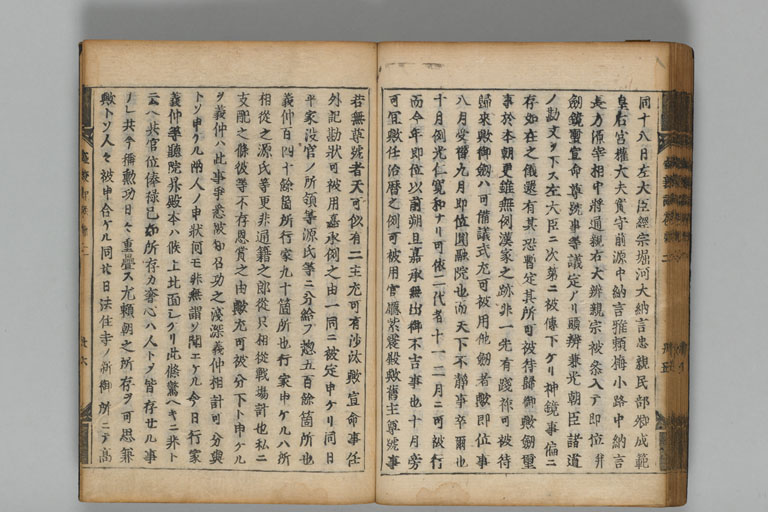 同十八日左大臣經宗堀河大納言忠親民部卿成範
皇后宮權大夫實守前源中納言雅頼梅小路中納言
長方備宰相中將通親右大辨親宗被參入テ即位并
劔鏡璽宣命尊號事等議定ノリ頭辨兼光朝臣諸道
ノ勘文ヲ下ス左大臣ニ次第ニ被傳下ケリ神鏡事偏ニ
存如在之儀還有其恐暫定其所可被待歸御歟劔璽
事於本朝更雖無例漢家之跡非一先有踐祚可被待
歸來歟御劔ハ可備議式尤可被用他劔者歟即位事
八月受禪九月即位圓融院也而天下不靜事卒爾也
十月例光仁寛和ナリ可依二代者十一二月ニ可被行
而今年即位以前朔旦嘉承無出御不吉事也十月旁
可宜歟任治曆之例可被用官廳紫宸殿歟舊主尊號事
若無尊號者天可似有二主尤可有沙汰歟宣命事任
外記勘狀可被用嘉承例之由一同ニ被定申ケリ同日
平家沒官ノ所領等源氏等ニ分給フ惣五百餘箇所也
義仲百四十餘箇所行家九十箇所也行家申ケルハ所
相從之源氏等更非通籍之郎從只相從戰場計也私ニ
支配之條彼等不存恩賞之由歟尤可被分下ト申ケル
ヲ義仲ハ此事爭悉被知召功之淺深義仲相計可分與
トソ申ケル兩人ノ申狀何モ非無謂ソ聞エケル今日行家
義仲等聽院昇殿本ハ候上北面シケリ此條驚ヘキニ非ト
云ヘ共官位俸祿已如所存カ奢心ハ人トヲ皆存廿ル事
ノレ共今稱勳功日々重疊ス尤頼朝之所存ヲ可思兼
歟トソ人々被申合ケル同廿日法住寺ノ新御所ニテ高